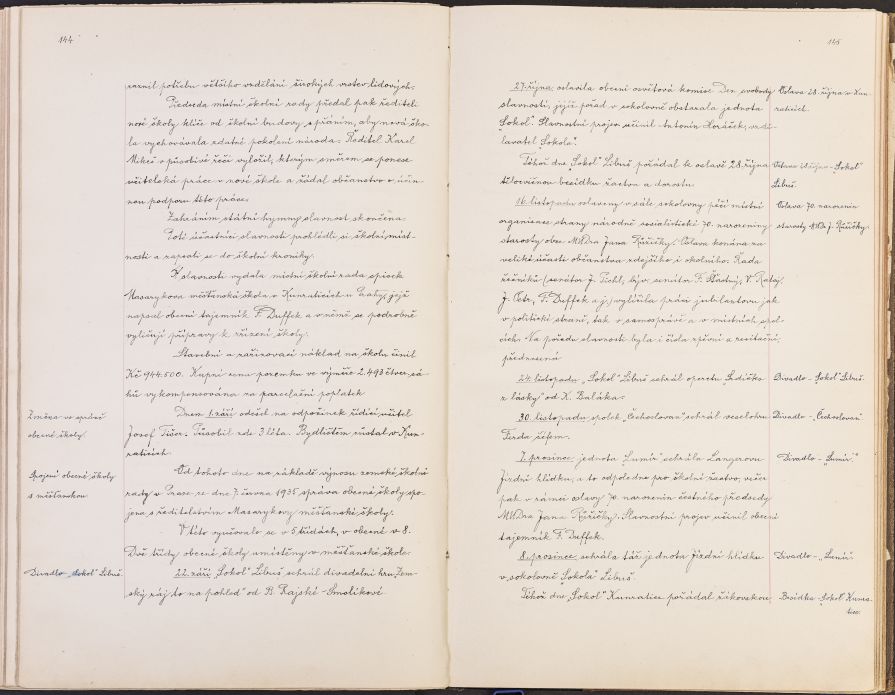 144
raznil potřebu většího vzdělání širokých vrstev lidových.
Předseda místní školní rady předal pak řediteli
nové školy klíče od školní budovy s přáním, aby nová ško-
la vychovávala zdatné pokolení národa. Ředitel Karel
Mikeš v působivé řeči vyložil, kterým směrem se ponese
učitelská práce v nové škole a žádal občanstvo o účin-
nou podporu této práce.
Zahráním státní hymny slavnost skončena.
Poté účastníci slavnosti prohlédli si školní míst-
nosti a zapsali se do školní kroniky.
K slavnosti vydala místní školní rada spisek
Masarykova měšťanská škola v Kunraticích u Prahy, jejž
napsal obecní tajemník F. Duffek a v němž se podrobně
vyličují přípravy k zřízení školy.
Stavební a zařizovací náklad na školu činil
Kč 944.500. Kupní cena pozemku ve výměře 2.493 čtver. sá-
hů vykompensována za parcelační poplatek.
Změna ve správě
obecné školy.
Dnem 1. září odešel na odpočinek řídící učitel
Josef Tůor. Působil zde 3 léta. Bydlištěm zůstal v Kun-
raticích.
Spojení obecné školy
s měšťanskou.
Od tohoto dne na základě výnosu zemské školní
rady v Praze ze dne 7. června 1935 správa obecné školy spo-
jena s ředitelstvím Masarykovy měšťanské školy.
V této vyučovalo se v 5 třídách, v obecné v 8.
Dvě třídy obecné školy umístěny v měšťanské škole.
Divadlo "Sokol" Libuš.
22. září "Sokol" Libuš sehrál divadelní hru "Zem-
ský ráj to na pohled" od B. Rajské-Smolíkové.
145
27. října oslavila obecní osvětová komise Den svobody
slavností, jejíž pořad v sokolovně obstarala jednota
"Sokol". Slavnostní projev učinil Antonín Horáček, vzdě-
lavatel "Sokola".
Oslava 28. října v Kun-
raticích.
Téhož dne "Sokol" Libuš pořádal k oslavě 28. října
tělocvičnou besídku žactva a dorostu.
Oslava 28. října - "Sokol"
Libuš.
16. listopadu oslaveny v sále sokolovny péčí místní
organisace strany národně socialistické 70. narozeniny
starosty obce MUDra Jana Růžičky. Oslava konána za
veliké účasti občanstva zdejšího i okolního. Řada
řečníků (senátor J. Tichl, býv. senátor F. Šťastný, V. Rataj,
J. Petr, F. Duffek a j.) vylíčila práci jubilantovu jak
v politické straně, tak v samosprávě a v místních spol-
cích. Na pořadu slavnosti byla i čísla zpěvní a recitační,
přednesená
Oslava 70. narozenin
starosty MUDra J. Růžičky.
24. listopadu "Sokol" Libuš sehrál operetu "Srdíčko
z lásky" od K. Baláka.
Divadlo - "Sokol" Libuš.
30. listopadu spolek "Čechoslovan" sehrál veselohru
Ferda šéfem.
Divadlo - "Čechoslovan"
7. prosince jednota "Lumír" sehrála Langerovu
Jízdní hlídku, a to odpoledne pro školní žactvo, večer
pak v rámci oslavy 70. narozenin čestného předsedy
MUDra Jana Růžičky. Slavnostní projev učinil obecní
tajemník F. Duffek.
Divadlo - "Lumír".
8. prosince sehrála táž jednota Jízdní hlídku
v sokolovně "Sokola" Libuš.
Divadlo - "Lumír"
Téhož dne "Sokol" Kunratice pořádal žižkovskou
Besídka - "Sokol" Kunra-
tice.